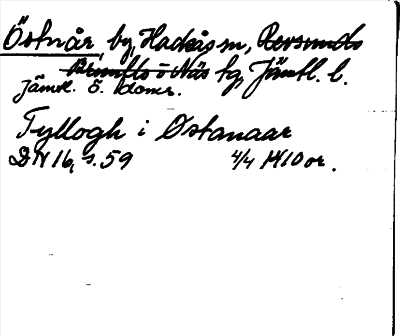 Östnår by, Hackås sn, Revsunds
Brunflo o Näs tg, Jämtl. l.
Jämtl. ö. doms.
Tyllogh i Østanaar
DN 16, s. 59 4/4 1410 or.